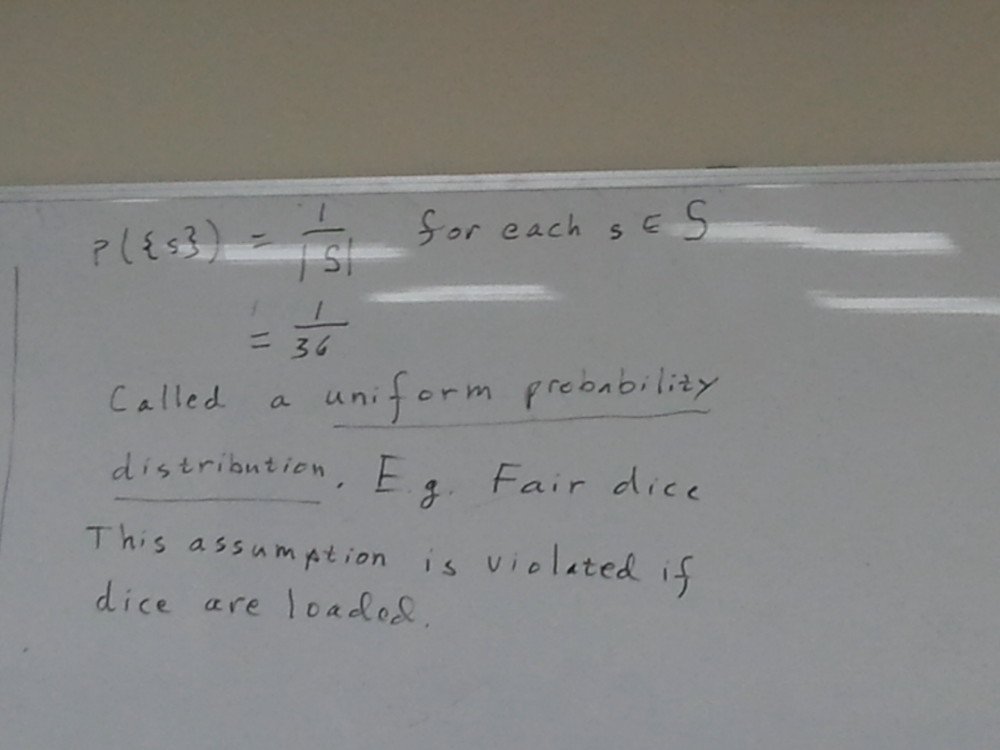 P({s}) = 1/|S| for each s ∈ S
= 1/36
Called a uniform probability
distribution. E.g. Fair dice
This assumption is violated if
dice are loaded.